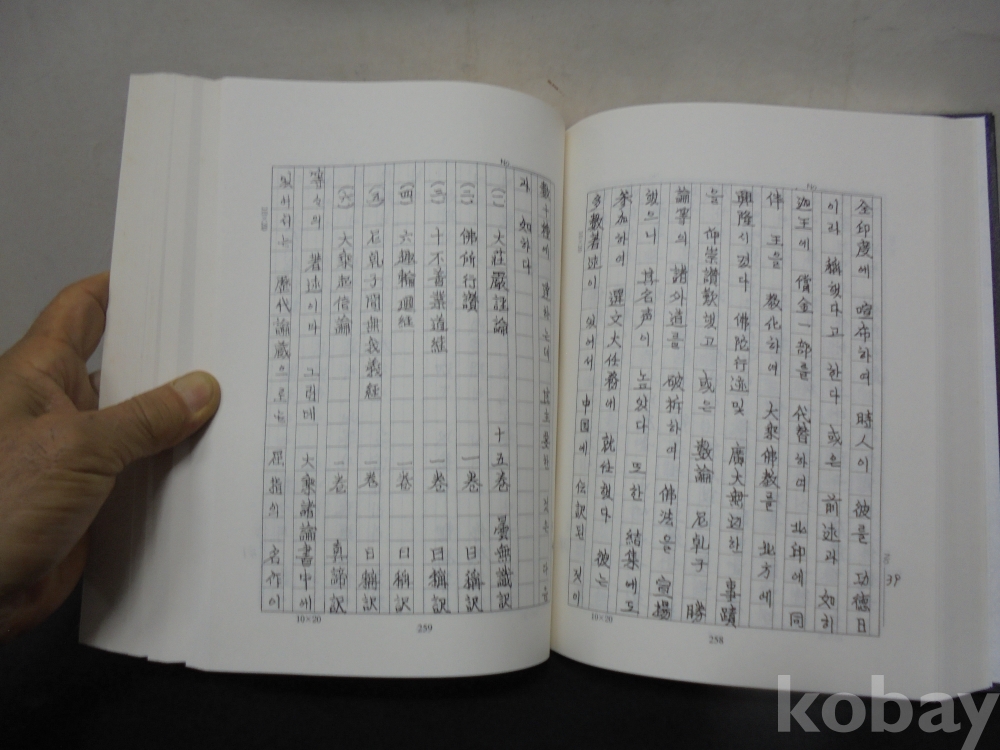 全印度에 宣布하여 時人이 彼를 功德日
이라 稱했다고 한다 或은 前述과 如히
迦王에 償金一部를 代替하여 北印에 同
伴 王을 敎化하여 大衆佛敎를 北方에
興隆시켰다 佛陀行述및 廣大無辺한 事蹟
을 仰崇讚歎했고 或은 數論 尼乾子 勝
論等의 諸外道를 破拆하여 佛法을 宣揚
했으니 其名声이 높았다 또한 結集에도
参加하여 選文大任務에 就任했다 彼는
多數著述이 있어서 中国에 伝訳된 것이
39
10×20
258
數十種에
과 如하다
(一) 大莊嚴註論 十五卷 曇無讖訳
(二) 佛所行讚 一卷 日稱訳
(三) 十不善業道経 一卷 日稱訳
(四) 六趣輪廻経 一卷 日稱訳
(五) 尼乾子問無我義経 一卷 日稱訳
(六) 大乘起信論 一卷 真諦訳
等等의 著述이다 그런데 大乘諸論書中에
있어서는 歷代論藏으로는 屈指의 名作이
10×20
259
kobay